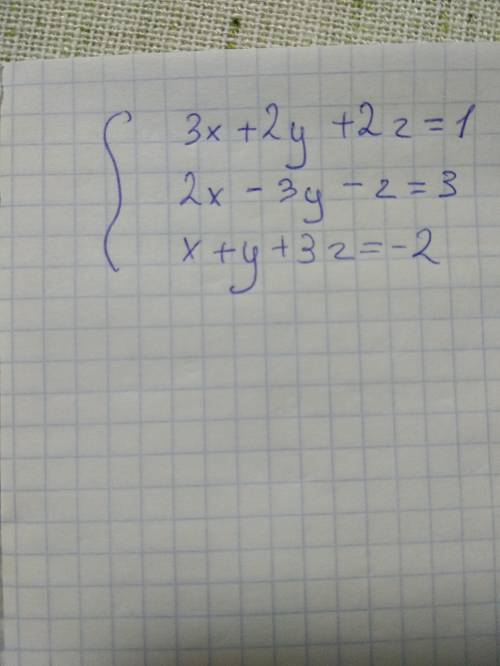 3x + 2y + 2z = 1
2x - 3y - z = 3
x + y + 3z = -2